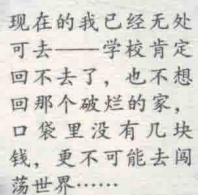 现在的我已经无处
可去——学校肯定
回不去了，也不想
回那个破烂的家，
口袋里没有几块
钱，更不可能去闯
荡世界……